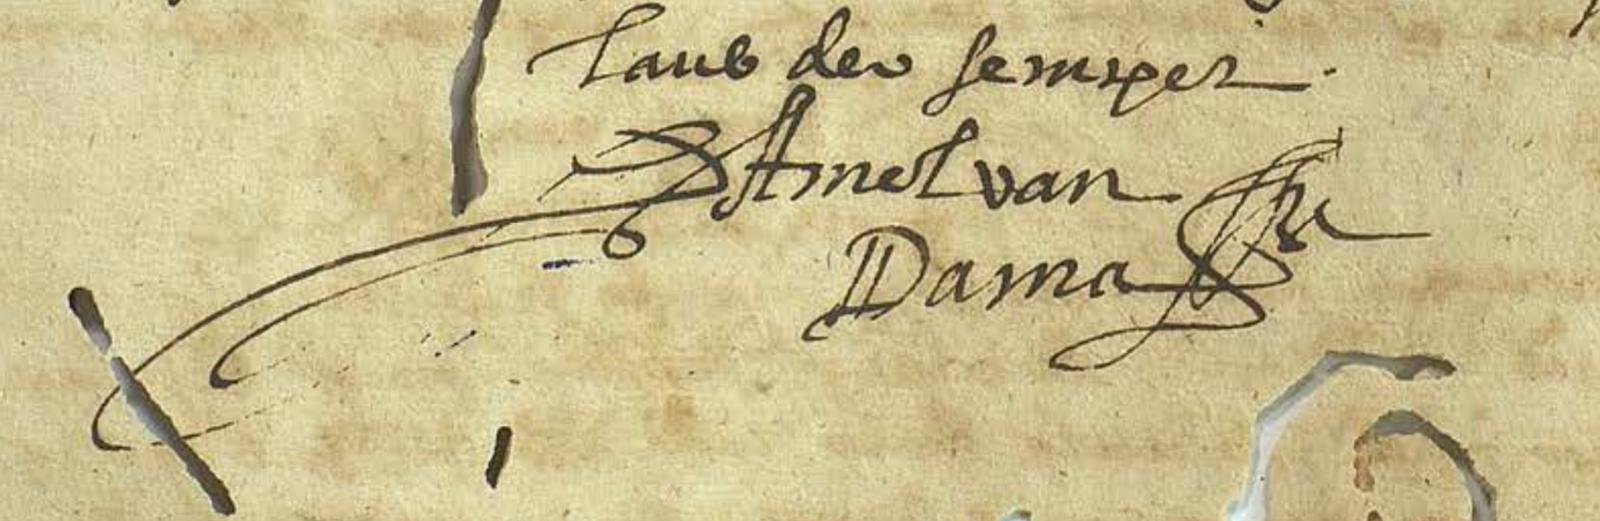 laus deo semper
Arnolt van
Dama